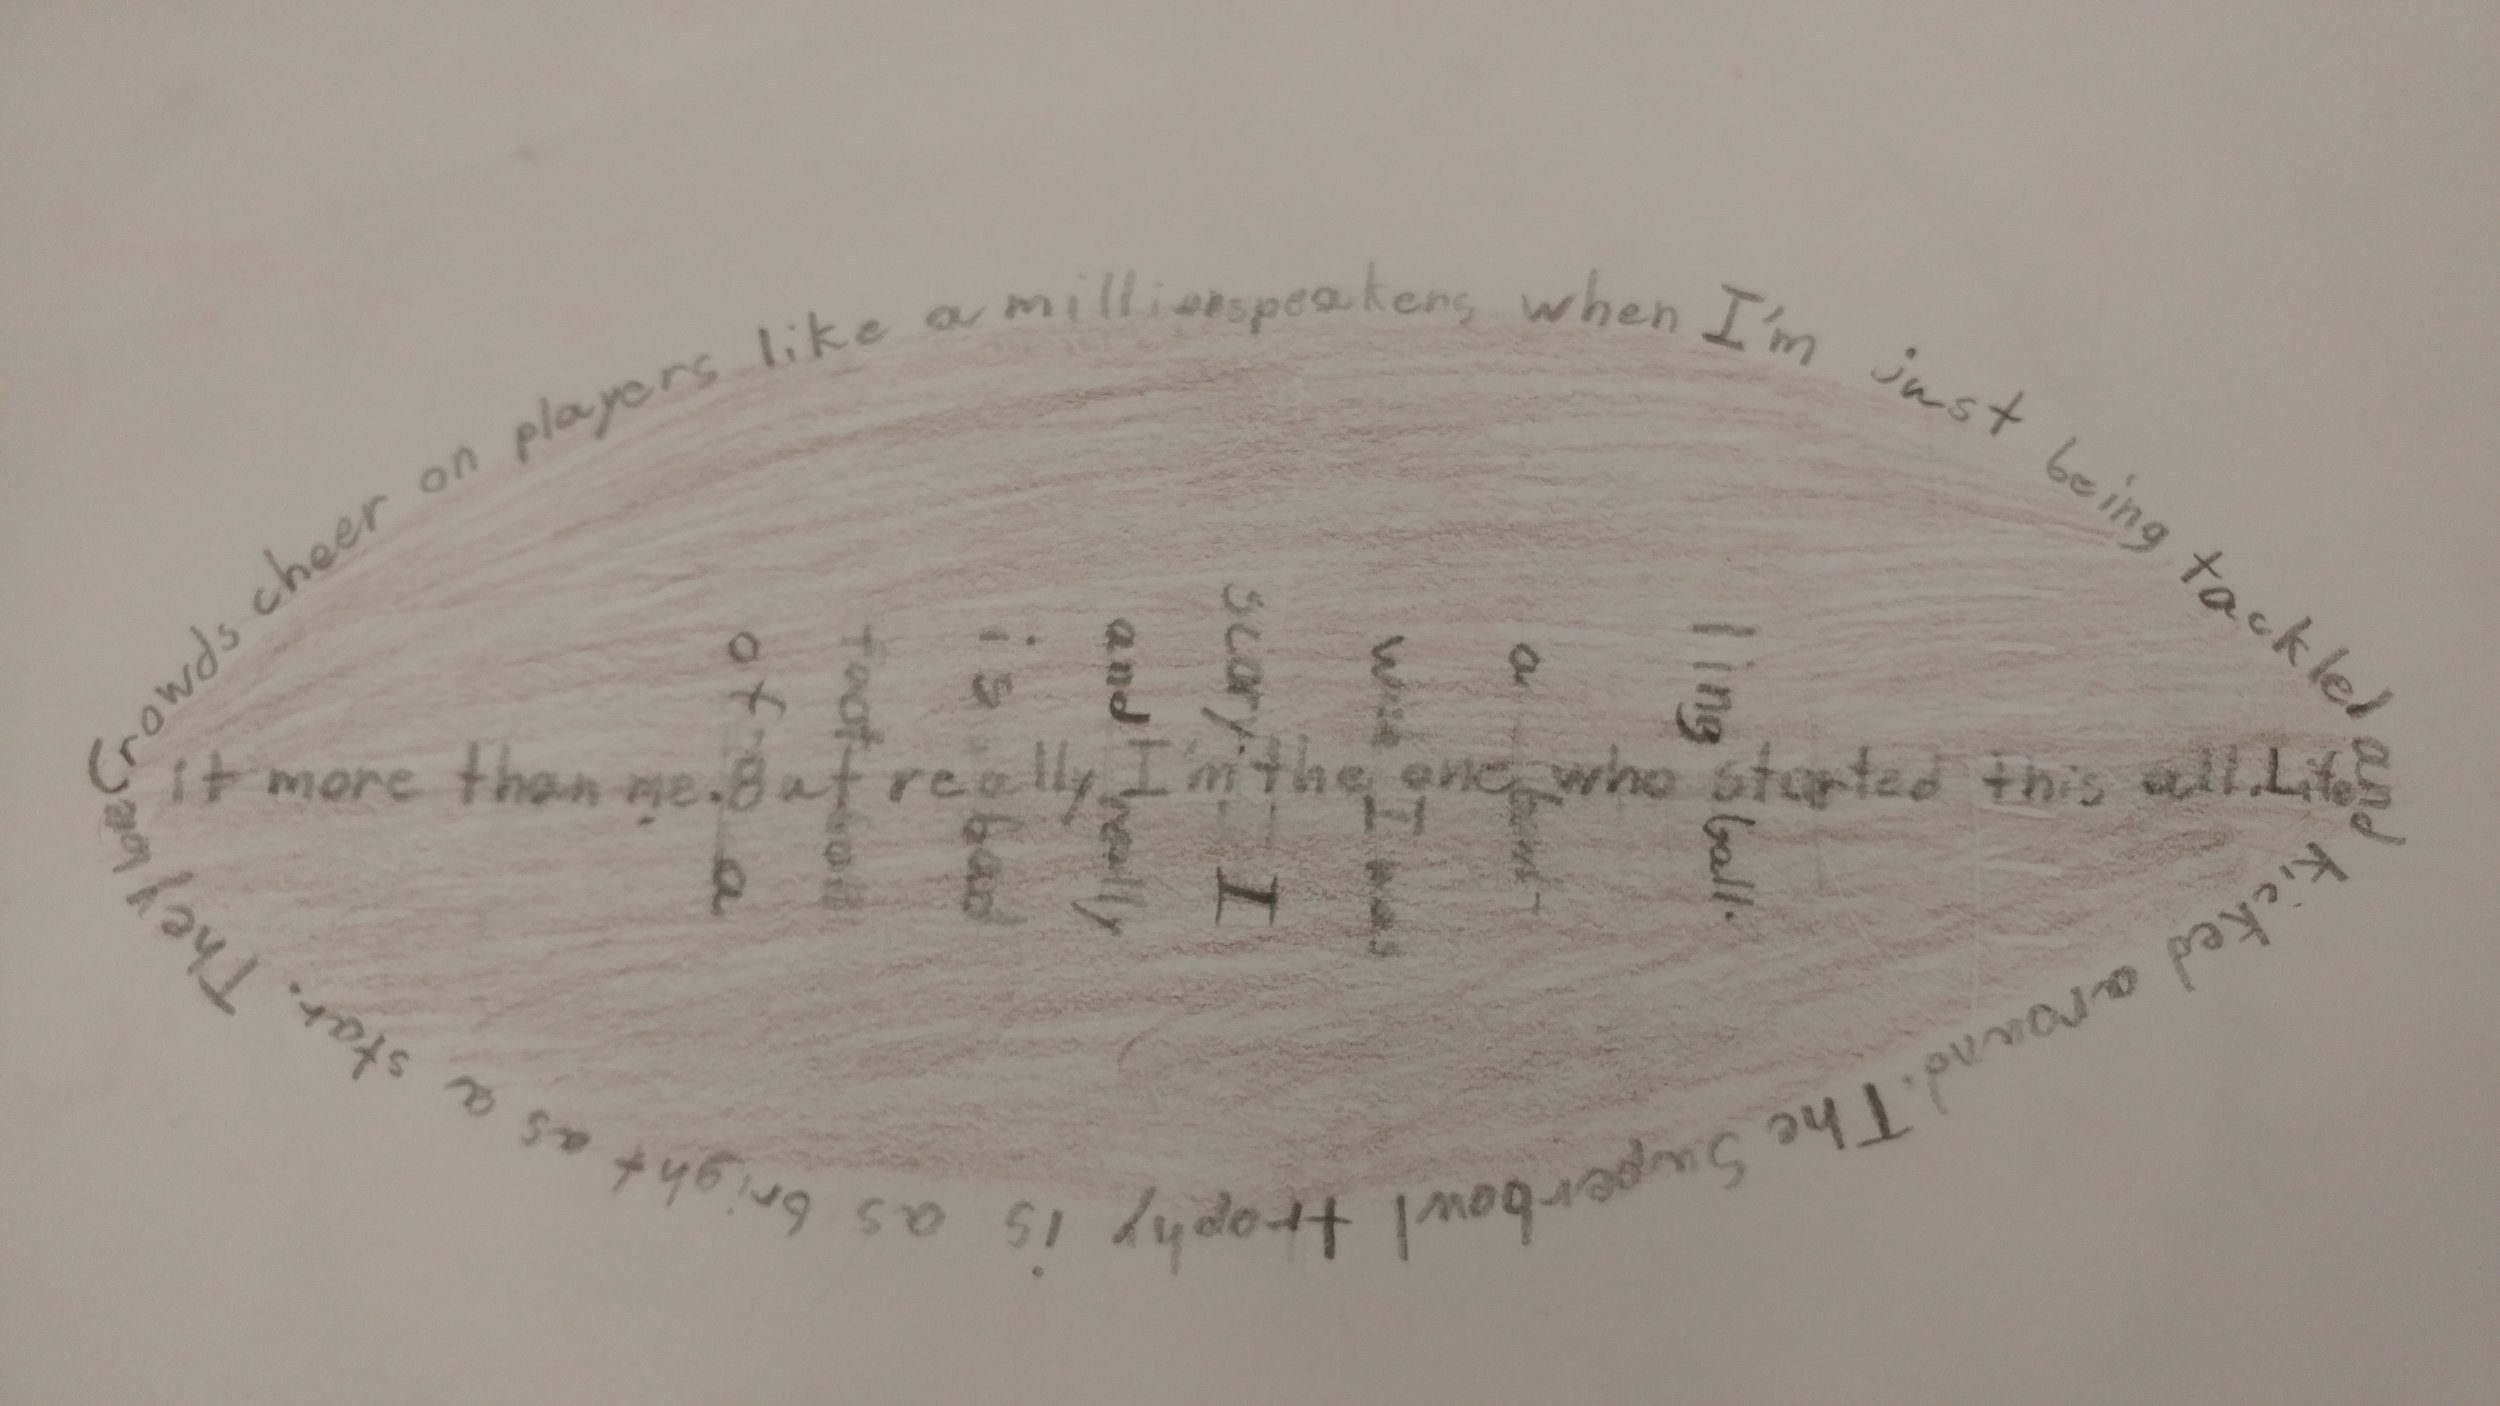 Crowds cheer on players like a million speakers, when I'm just being tackled and kicked around. The Superbowl trophy is as bright as a star. They hear
it more than me. But really I'm the one who started this all. Life
of a
football
is bad
and really
sciary. I
wish I was
a bowl-
ling ball.